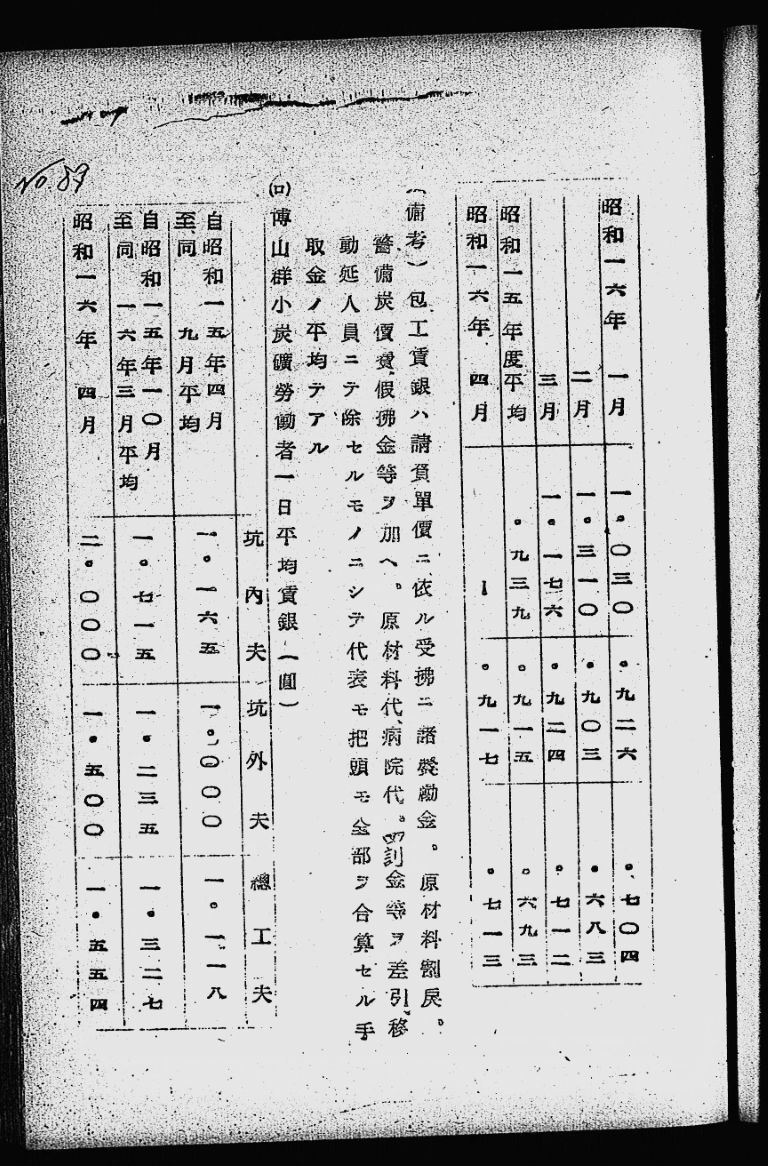 No. 89
昭和一六年 一月 一・〇三〇 ・九二六 ・七〇四
二月 一・三一〇 ・九〇三 ・六八三
三月 一・一七六 ・九二四 ・七一二
昭和一五年度平均 ・九三九 ・九一五 ・六九三
昭和一六年 四月 ー ・九一七 ・七一三
(備考) 包工賃銀ハ請負單價ニ依ル受拂ニ諸奬勵金。原材料割戾。
警備炭價費假拂金等ヲ加ヘ。原材料代、病院代。罰金等ヲ差引移
動延人員ニテ除セルモノニシテ代表モ把頭モ全部ヲ合算セル手
取金ノ平均デアル
(ロ) 博山群小炭礦勞働者一日平均賃銀(圓)
坑內夫 坑外夫 總工夫
自昭和一五年四月
至同 九月平均 一・一六五 一・〇〇〇 一・一一八
自昭和一五年一〇月
至同 一六年三月平均 一・七一五 一・二三五 一・三二七
昭和一六年 四月 二・〇〇〇 一・五〇〇 一・五五四